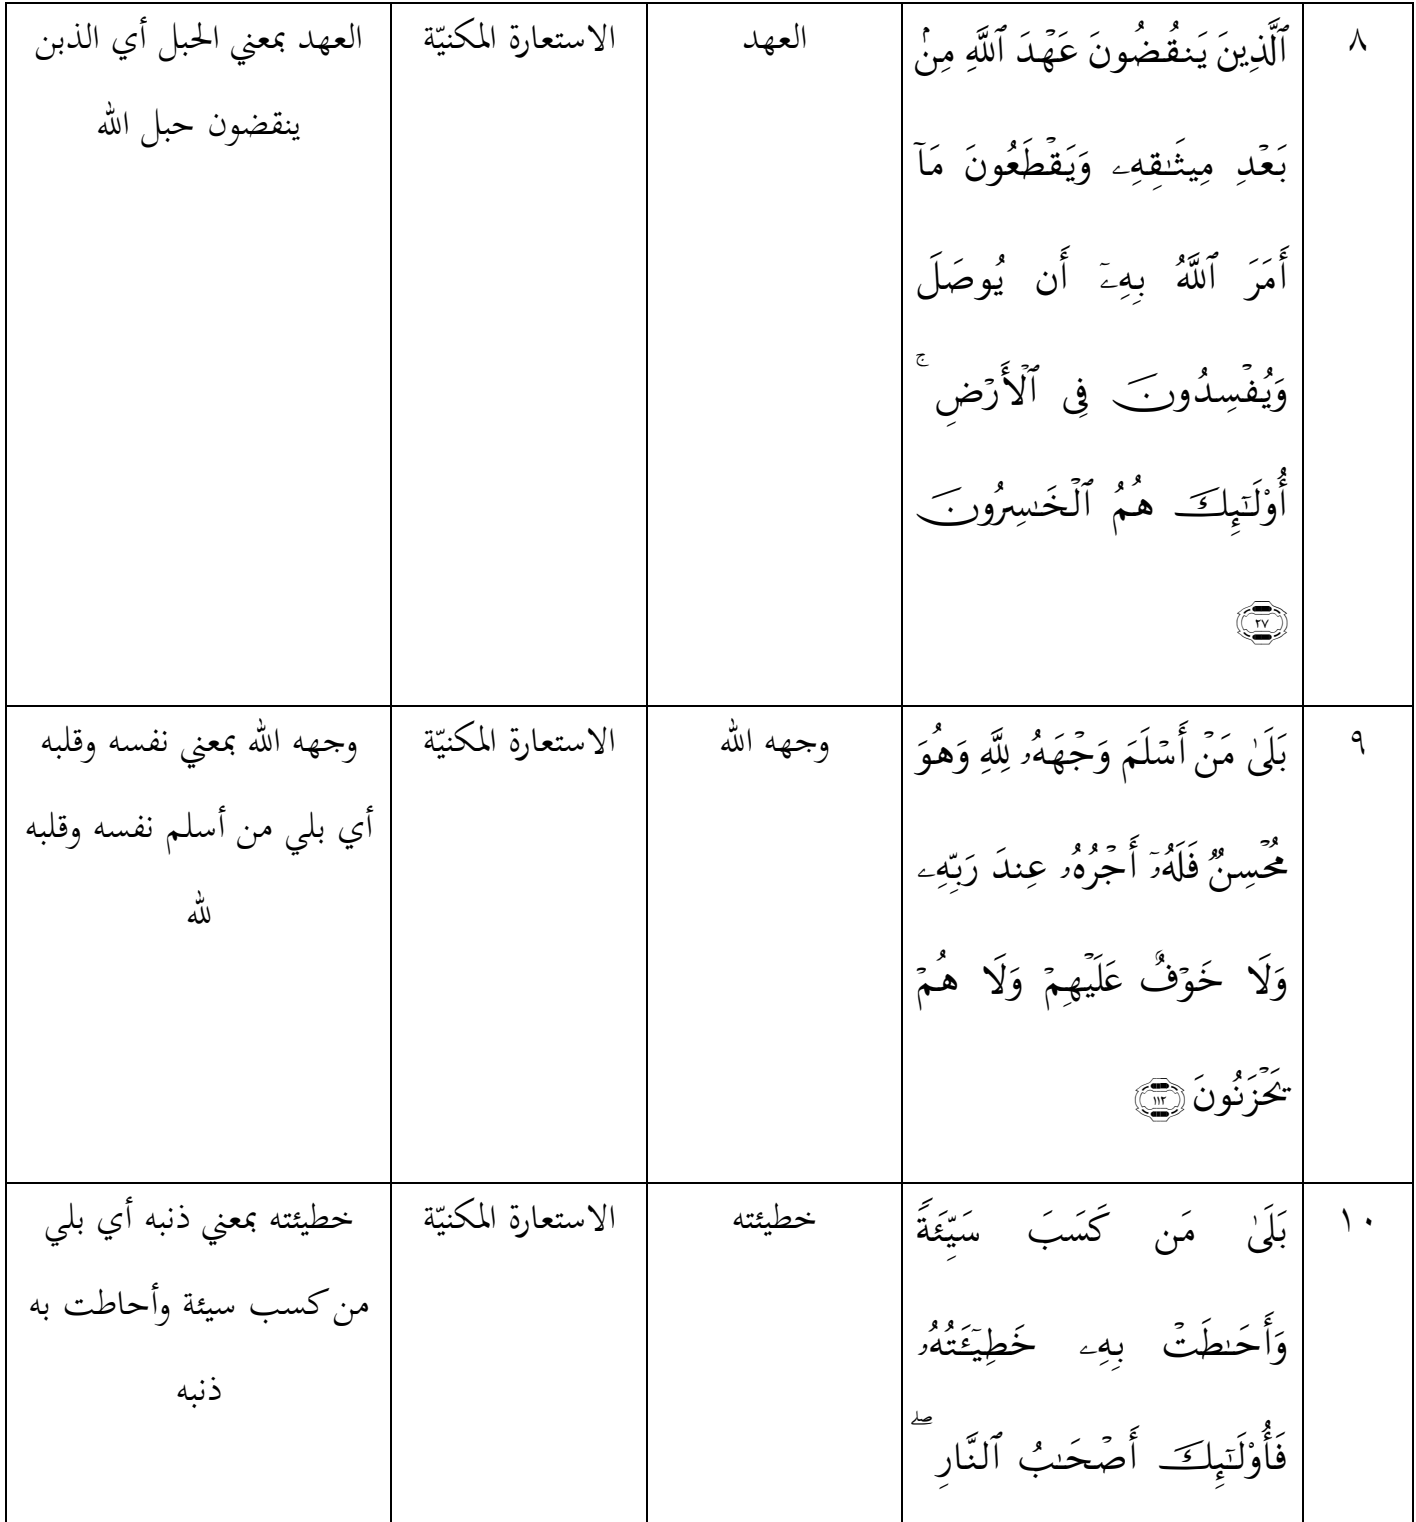 ٨
ٱلَّذِينَ يَنقُضُونَ عَهۡدَ ٱللَّهِ مِنۢ
بَعۡدِ مِيثَٰقِهِۦ وَيَقۡطَعُونَ مَآ
أَمَرَ ٱللَّهُ بِهِۦٓ أَن يُوصَلَ
وَيُفۡسِدُونَ فِي ٱلۡأَرۡضِۚ
أُوْلَٰٓئِكَ هُمُ ٱلۡخَٰسِرُونَ
٢٧
العهد
الاستعارة المكنيّة
العهد بمعني الحبل أي الذبن
ينقضون حبل الله
٩
بَلَىٰ مَنۡ أَسۡلَمَ وَجۡهَهُۥ لِلَّهِ وَهُوَ
مُحۡسِنٞ فَلَهُۥٓ أَجۡرُهُۥ عِندَ رَبِّهِۦ
وَلَا خَوۡفٌ عَلَيۡهِمۡ وَلَا هُمۡ
يَحۡزَنُونَ ١١٢
وجهه الله
الاستعارة المكنيّة
وجهه الله بمعني نفسه وقلبه
أي بلي من أسلم نفسه وقلبه
لله
١٠
بَلَىٰ مَن كَسَبَ سَيِّئَةٗ
وَأَحَٰطَتۡ بِهِۦ خَطِيٓـَٔتُهُۥ
فَأُوْلَٰٓئِكَ أَصۡحَٰبُ ٱلنَّارِۖ
خطيئته
الاستعارة المكنيّة
خطيئته بمعني ذنبه أي بلي
من كسب سيئة وأحاطت به
ذنبه